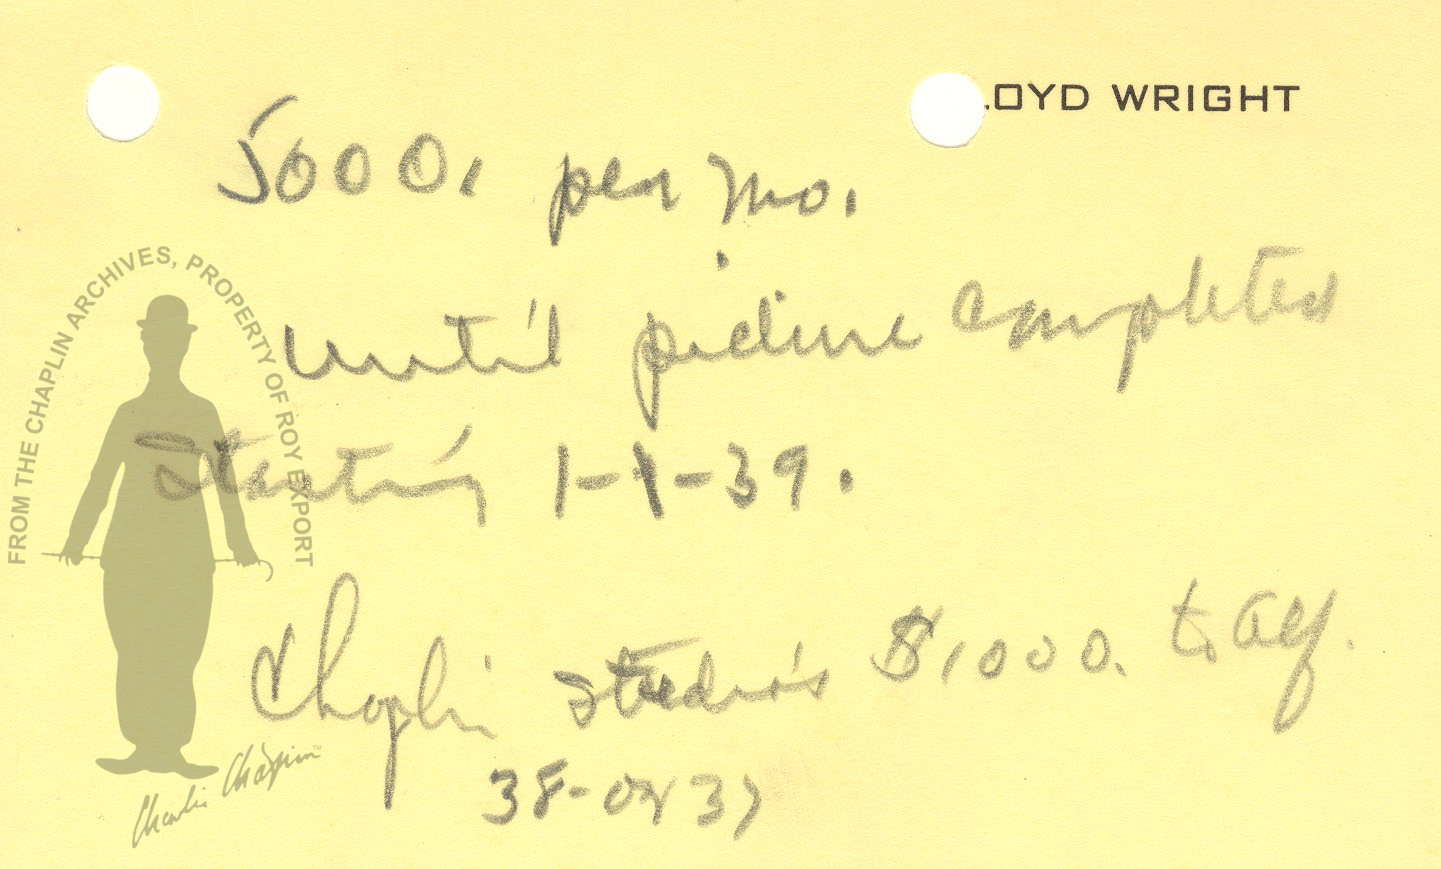 LOYD WRIGHT
5000. per mo.
until picture completed
starting 1-1-39.
Chaplin Studios $1000. to Alf.
38-or 37
FROM THE CHAPLIN ARCHIVES, PROPERTY OF ROY EXPORT
Charlie Chaplin™